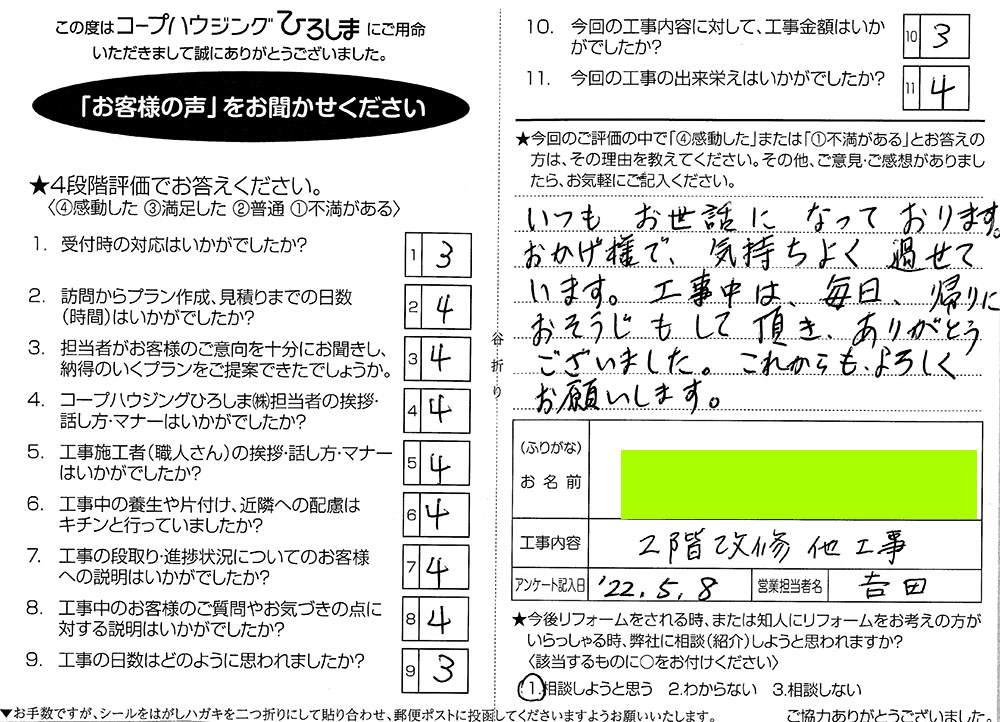 この度はコープハウジングひろしまにご用命
いただきまして誠にありがとうございました。
「お客様の声」をお聞かせください
★4段階評価でお答えください。
〈④感動した ③満足した ②普通 ①不満がある〉
1. 受付時の対応はいかがでしたか?
1 3
2. 訪問からプラン作成、見積りまでの日数
(時間)はいかがでしたか?
2 4
3. 担当者がお客様のご意向を十分にお聞きし、
納得のいくプランをご提案できたでしょうか。
3 4
4. コープハウジングひろしま㈱担当者の挨拶・
話し方・マナーはいかがでしたか?
4 4
5. 工事施工者(職人さん)の挨拶・話し方・マナー
はいかがでしたか?
5 4
6. 工事中の養生や片付け、近隣への配慮は
キチンと行っていましたか?
6 4
7. 工事の段取り・進捗状況についてのお客様
への説明はいかがでしたか?
7 4
8. 工事中のお客様のご質問やお気づきの点に
対する説明はいかがでしたか?
8 4
9. 工事の日数はどのように思われましたか?
9 3
谷・折り
10. 今回の工事内容に対して、工事金額はいか
がでしたか?
10 3
11. 今回の工事の出来栄えはいかがでしたか?
11 4
★今回のご評価の中で「④感動した」または「①不満がある」とお答えの
方は、その理由を教えてください。その他、ご意見・ご感想がありまし
たら、お気軽にご記入ください。
いつも お世話に なって おります。
おかげ様で、気持ちよく 過せて
います。工事中は、毎日、帰りに
おそうじもして頂き、ありがとう
ございました。これからも、よろしく
お願いします。
(ふりがな)
お名前
工事内容 2階改修他工事
アンケート記入日 '22.5.8 営業担当者名 吉田
★今後リフォームをされる時、または知人にリフォームをお考えの方が
いらっしゃる時、弊社に相談(紹介)しようと思われますか?
〈該当するものに○をお付けください〉
1.相談しようと思う 2.わからない 3.相談しない
▼お手数ですが、シールをはがしハガキを二つ折りにして貼り合わせ、郵便ポストに投函してくださいますようお願いいたします。
ご協力ありがとうございました。